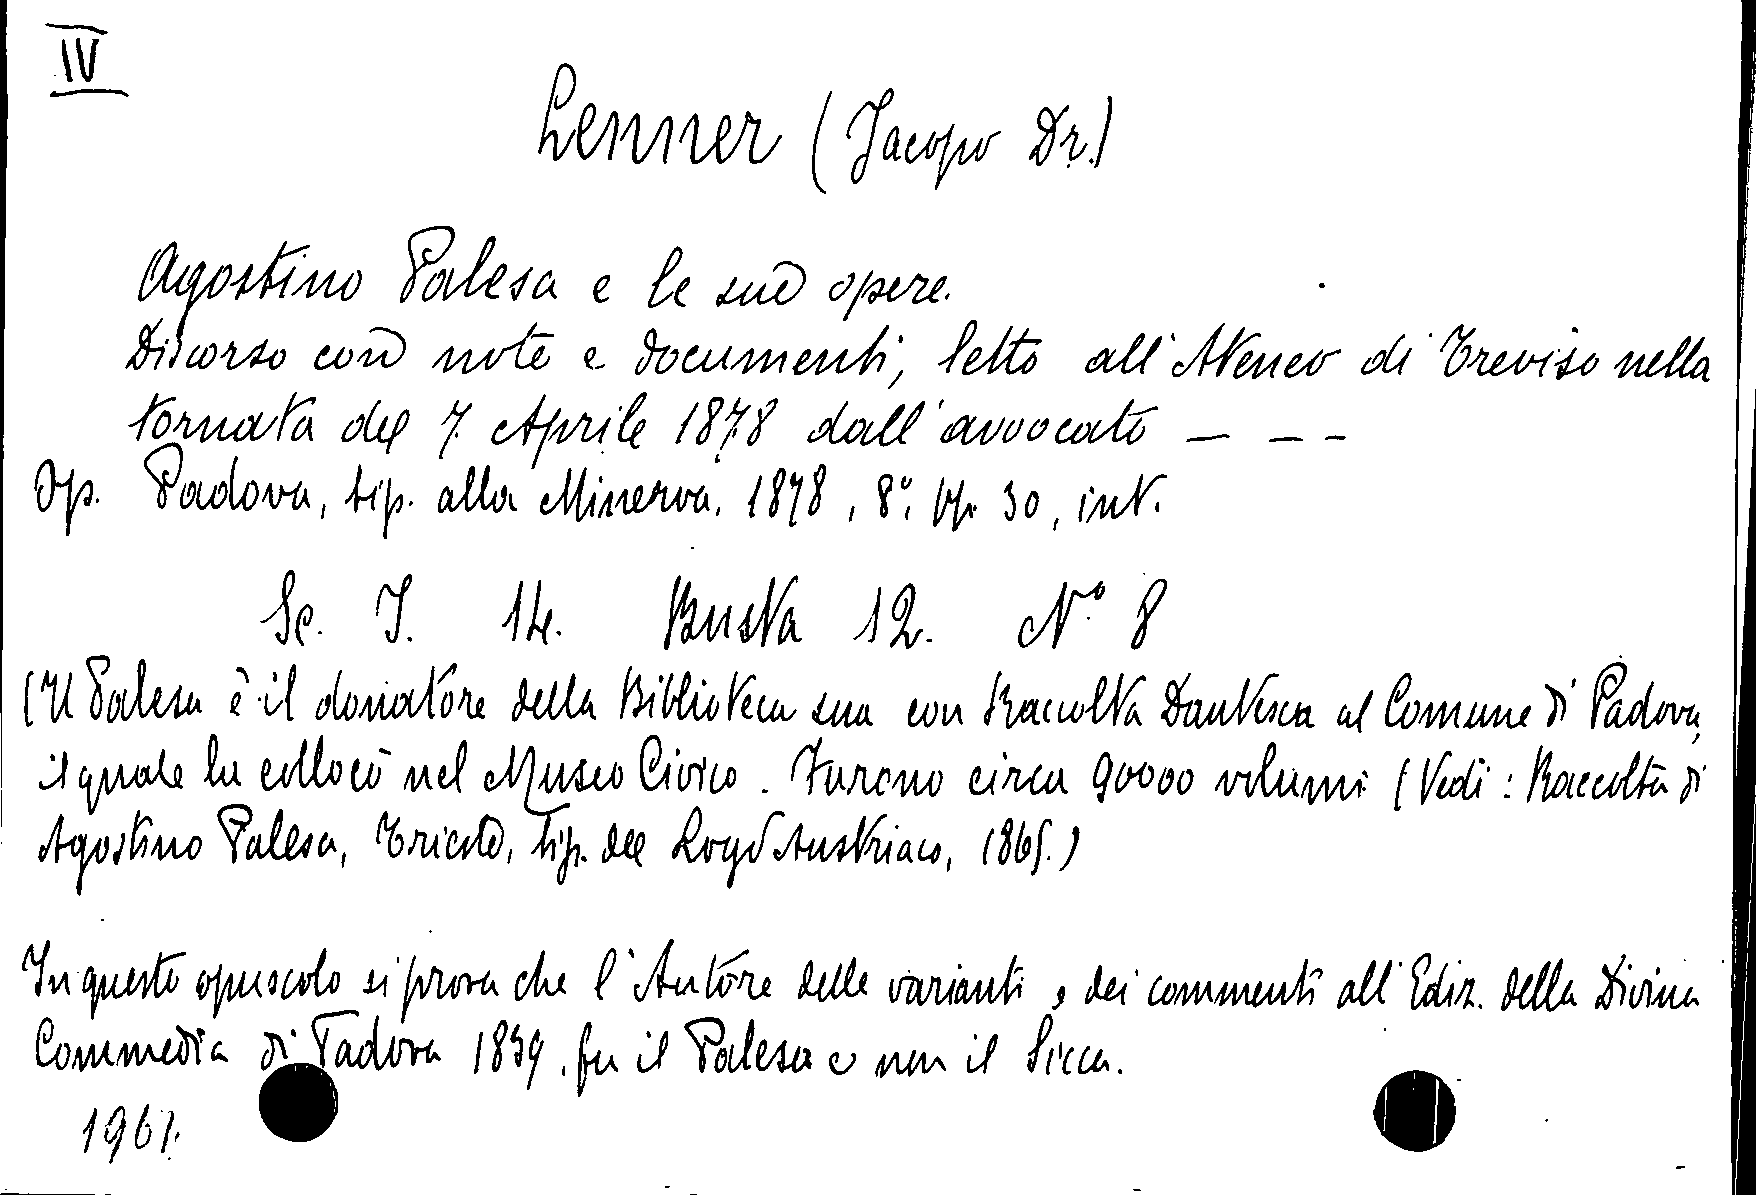 IV
Lenner (Jacopo Dr.)
Agostino Palesa e le sue opere.
Discorso con note e documenti, letto all'Ateneo di Treviso nella
tornata del 7. Aprile 1878 dall'avvocato — — —
Op. Padova, tip. alla Minerva. 1878, 8°. pp. 30, int.
Sc. I. 14. Busta 12. N.° 8
(Il Palesa è il donatore della Biblioteca sua con Raccolta Dantesca al Comune di Padova,
il quale la collocò nel Museo Civico. Furono circa 90000 volumi (Vedi: Raccolta di
Agostino Palesa, Trieste, tip. del Loyd Austriaco, 1865.)
In questo opuscolo si prova che l'Autore delle varianti e dei commenti all'Ediz. della Divina
Commedia di Padova 1859. fu il Palesa e non il Sicca.
1961.